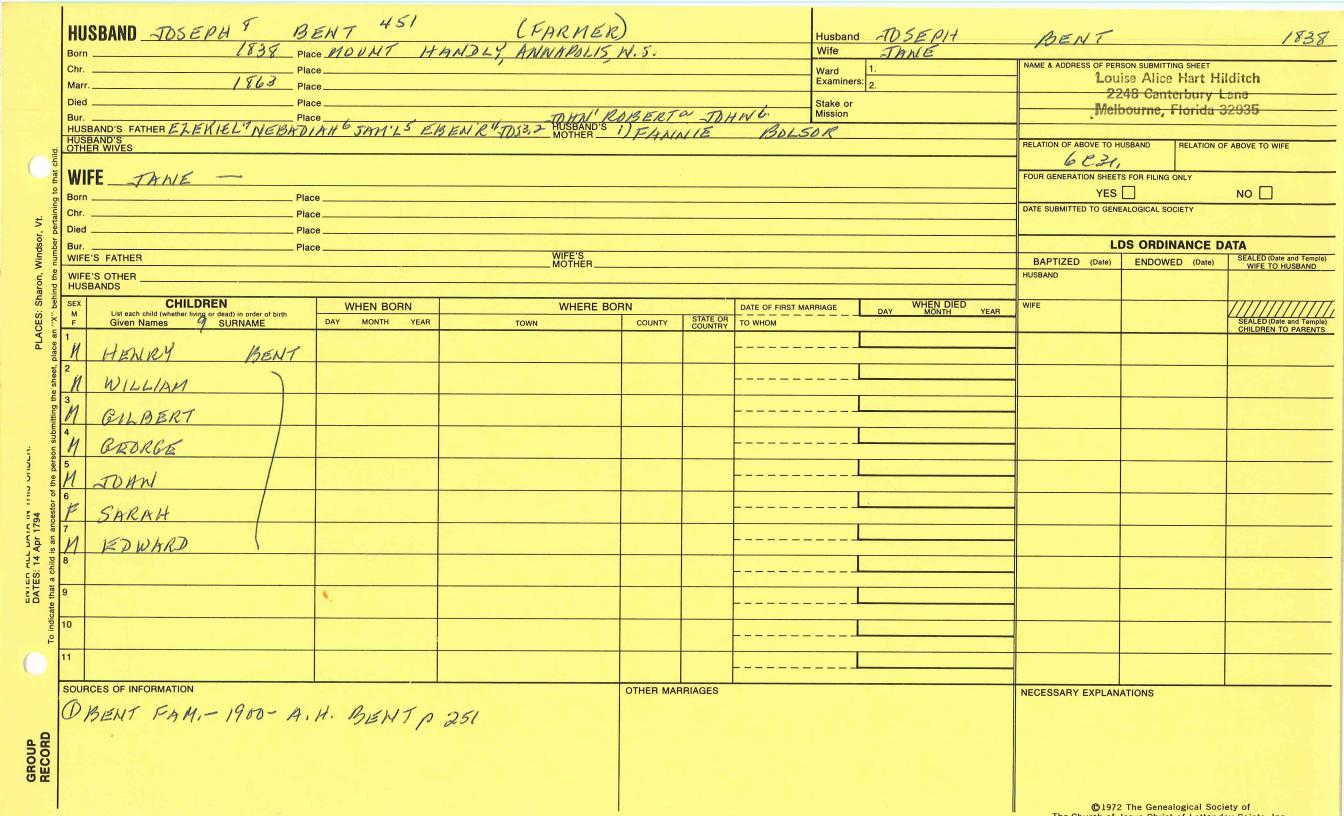 HUSBAND JOSEPH 8 BENT 451 (FARMER)
Born 1838 Place MOUNT HANDLY, ANNAPOLIS, N.S.
Chr. Place
Marr. 1863 Place
Died Place
Bur. Place
JOHN' ROBERT JOHN
HUSBAND'S FATHER EZEKIEL NEBADIAH 6 SAM'L 5 EBEN'R HUSBAND'S MOTHER 1) FANNIE BOLSOR
HUSBAND'S OTHER WIVES
Husband JOSEPH BENT 1838
Wife JANE
Ward Examiners: 1.
2.
Stake or Mission
NAME & ADDRESS OF PERSON SUBMITTING SHEET
Louise Alice Hart Hilditch
2248 Canterbury Lane
Melbourne, Florida 32935
RELATION OF ABOVE TO HUSBAND RELATION OF ABOVE TO WIFE
FOUR GENERATION SHEETS FOR FILING ONLY
YES NO
DATE SUBMITTED TO GENEALOGICAL SOCIETY
WIFE JANE —
Born Place
Chr. Place
Died Place
Bur. Place
WIFE'S FATHER WIFE'S MOTHER
WIFE'S OTHER HUSBANDS
LDS ORDINANCE DATA
BAPTIZED (Date) ENDOWED (Date) SEALED (Date and Temple) WIFE TO HUSBAND
HUSBAND
WIFE
SEALED (Date and Temple) CHILDREN TO PARENTS
SEX M F
CHILDREN
List each child (whether living or dead) in order of birth
Given Names 9 SURNAME
WHEN BORN
DAY MONTH YEAR
WHERE BORN
TOWN COUNTY STATE OR COUNTRY
DATE OF FIRST MARRIAGE
TO WHOM
WHEN DIED
DAY MONTH YEAR
1 M HENRY BENT
2 M WILLIAM
3 M GILBERT
4 M GEORGE
5 M JOHN
6 F SARAH
7 M EDWARD
8
9
10
11
SOURCES OF INFORMATION
① BENT FAM. - 1900 - A.H. BENT p 251
OTHER MARRIAGES
NECESSARY EXPLANATIONS
©1972 The Genealogical Society of
The Church of Jesus Christ of Latter-day Saints, Inc.
PLACES: Sharon, Windsor, Vt.
To indicate that a child is an ancestor of the person submitting the sheet, place an "X" behind the number pertaining to that child.
ENTER ALL DATA IN THIS ORDER:
DATES: 14 Apr 1794
GROUP RECORD